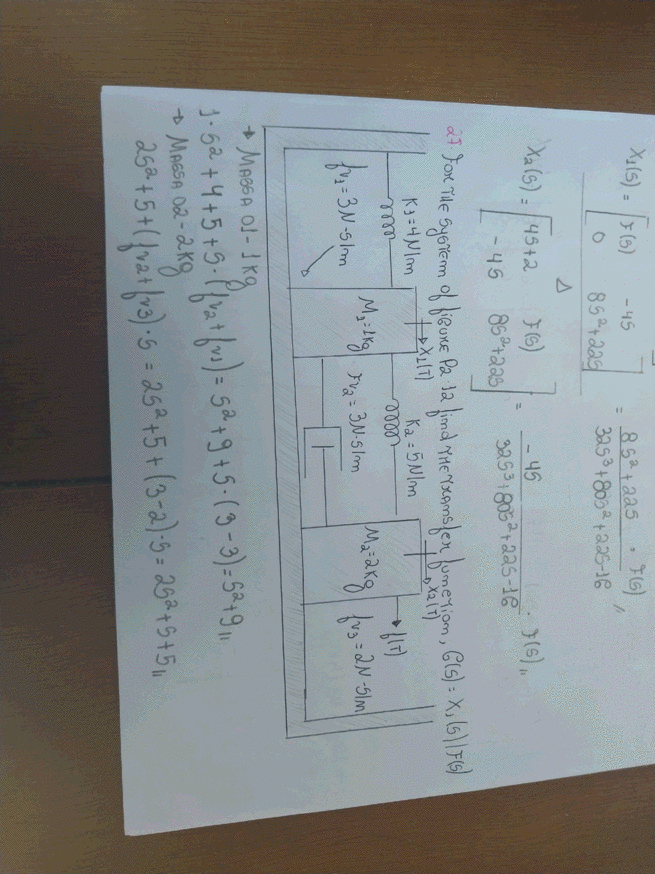 X1(s) = [F(s) -4s
0 8s²+22s] = 8s²+22s / 32s³+80s²+22s-16 . F(s) //
Δ
X2(s) = [4s+2 F(s)
-4s 8s²+22s] = -4s / 32s³+80s²+22s-16 . F(s) //
2) FOR THE SYSTEM OF FIGURE P2.12 FIND THE TRANSFER FUNCTION, G(s) = X1(s)/F(s)
X1(T) X2(T)
K1=4N/m K2=5N/m f(T)
M1=1Kg M2=2Kg
fv1=3N-s/m fv2=3N-s/m fv3=2N-s/m
→ MASSA 01 - 1kg
1·s²+4+5+s·(fv2+fv1) = s²+9+s·(3-3) = s²+9 //
→ MASSA 02 - 2kg
2s²+5+(fv2+fv3)·s = 2s²+5+(3-2)·s = 2s²+s+5 //